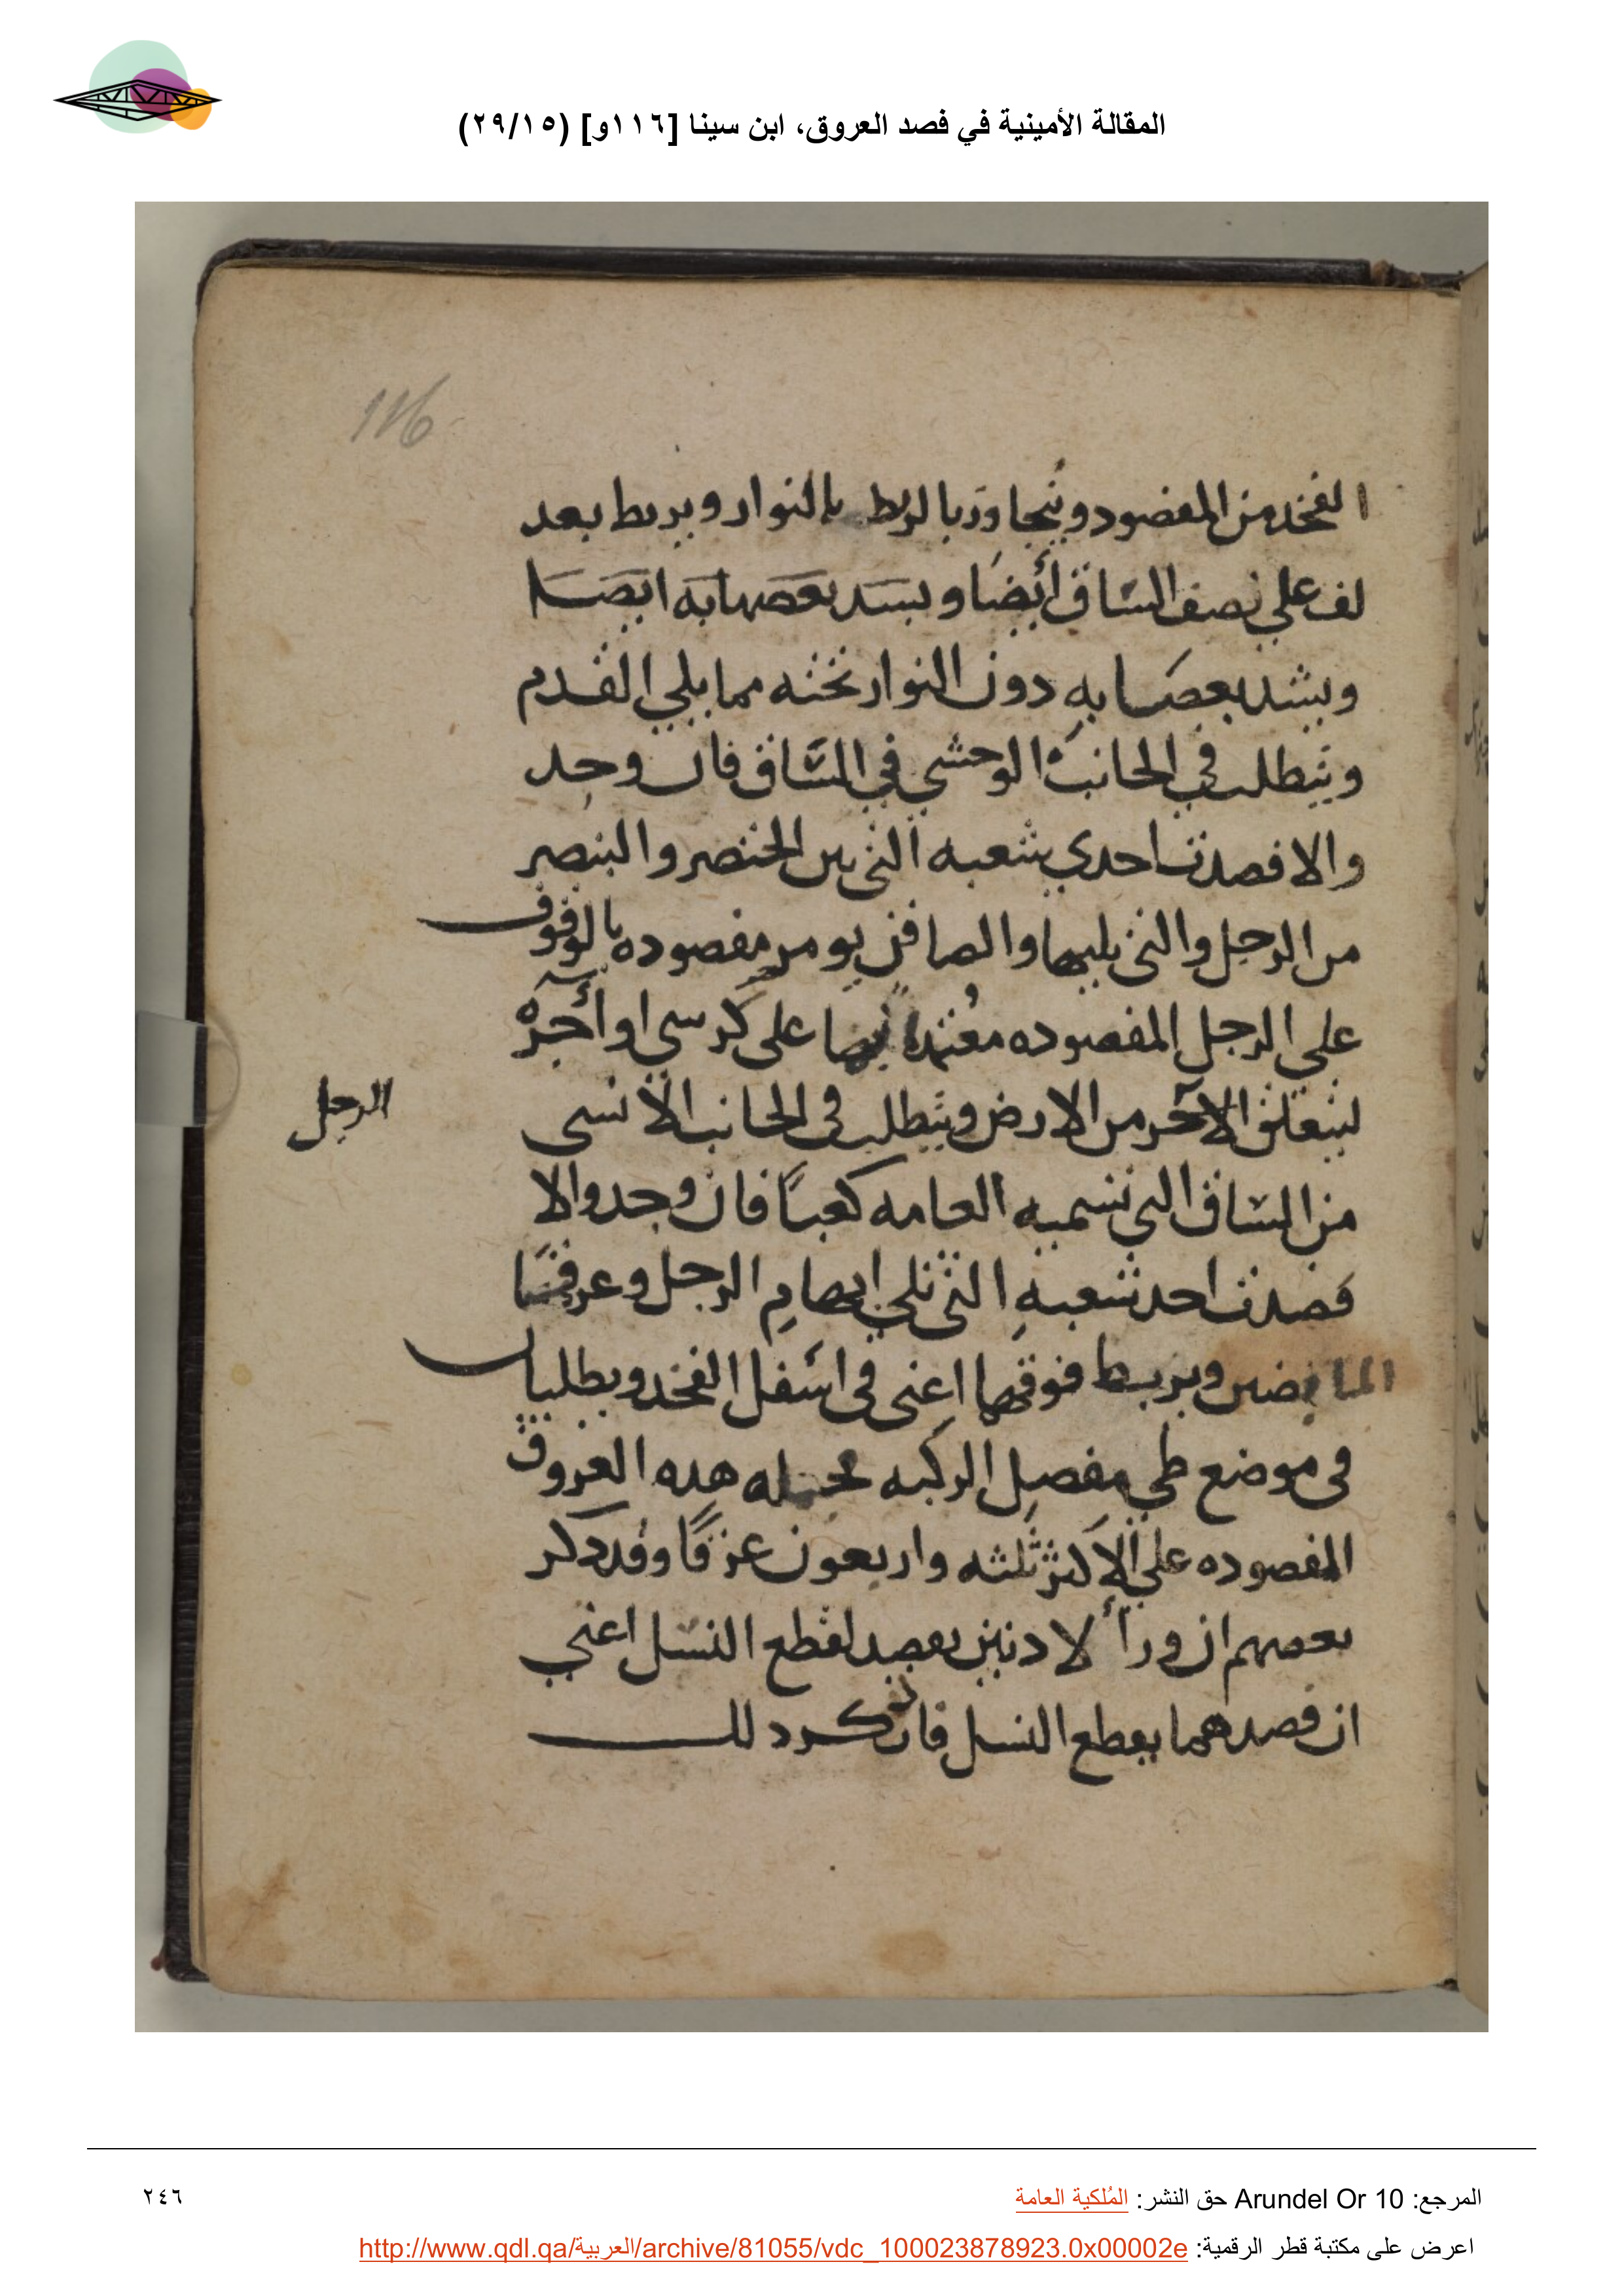 المقالة الأمينية في فصد العروق، ابن سينا [١١٦و] (٢٩/١٥)
116
الفخد من المفصود ويتجاوز بالربط بالنوار ويربط بعد
لف علي نصف الساق أيضا ويسد بعصابه ايضا
ويشد بعصابه دون النوار تحته مما يلي القدم
ويتطلب في الجانب الوحشي في الساق فان وجد
والا فصدت احدي شعبه التي بين الخنصر والبنصر
من الرجل والتي يليها والصافن يومر مفصوده بالوقوف
على الرجل المفصوده معتمدا بها على كرسي او آجره
ليتعلق الاخر من الارض ويتطلب في الجانب الانسي
الرجل
من الساق التي تسميه العامه كعبا فان وجد والا
فصدت احد شعبه التي تلي ابهام الرجل وعرقا
المابضين ويربط فوقها اعني في اسفل الفخد ويطلبان
في موضع طي مفصل الركبه فجمله هده العروق
المفصوده علي الاكثر ثلثه واربعون عرقا وقد دكر
بعضهم ان ورا الادنين يفصد لقطع النسل اعني
ان فصدهما يقطع النسل فان كر دلك
المرجع: Arundel Or 10 حق النشر: المُلكية العامة
٢٤٦
اعرض على مكتبة قطر الرقمية: http://www.qdl.qa/العربية/archive/81055/vdc_100023878923.0x00002e